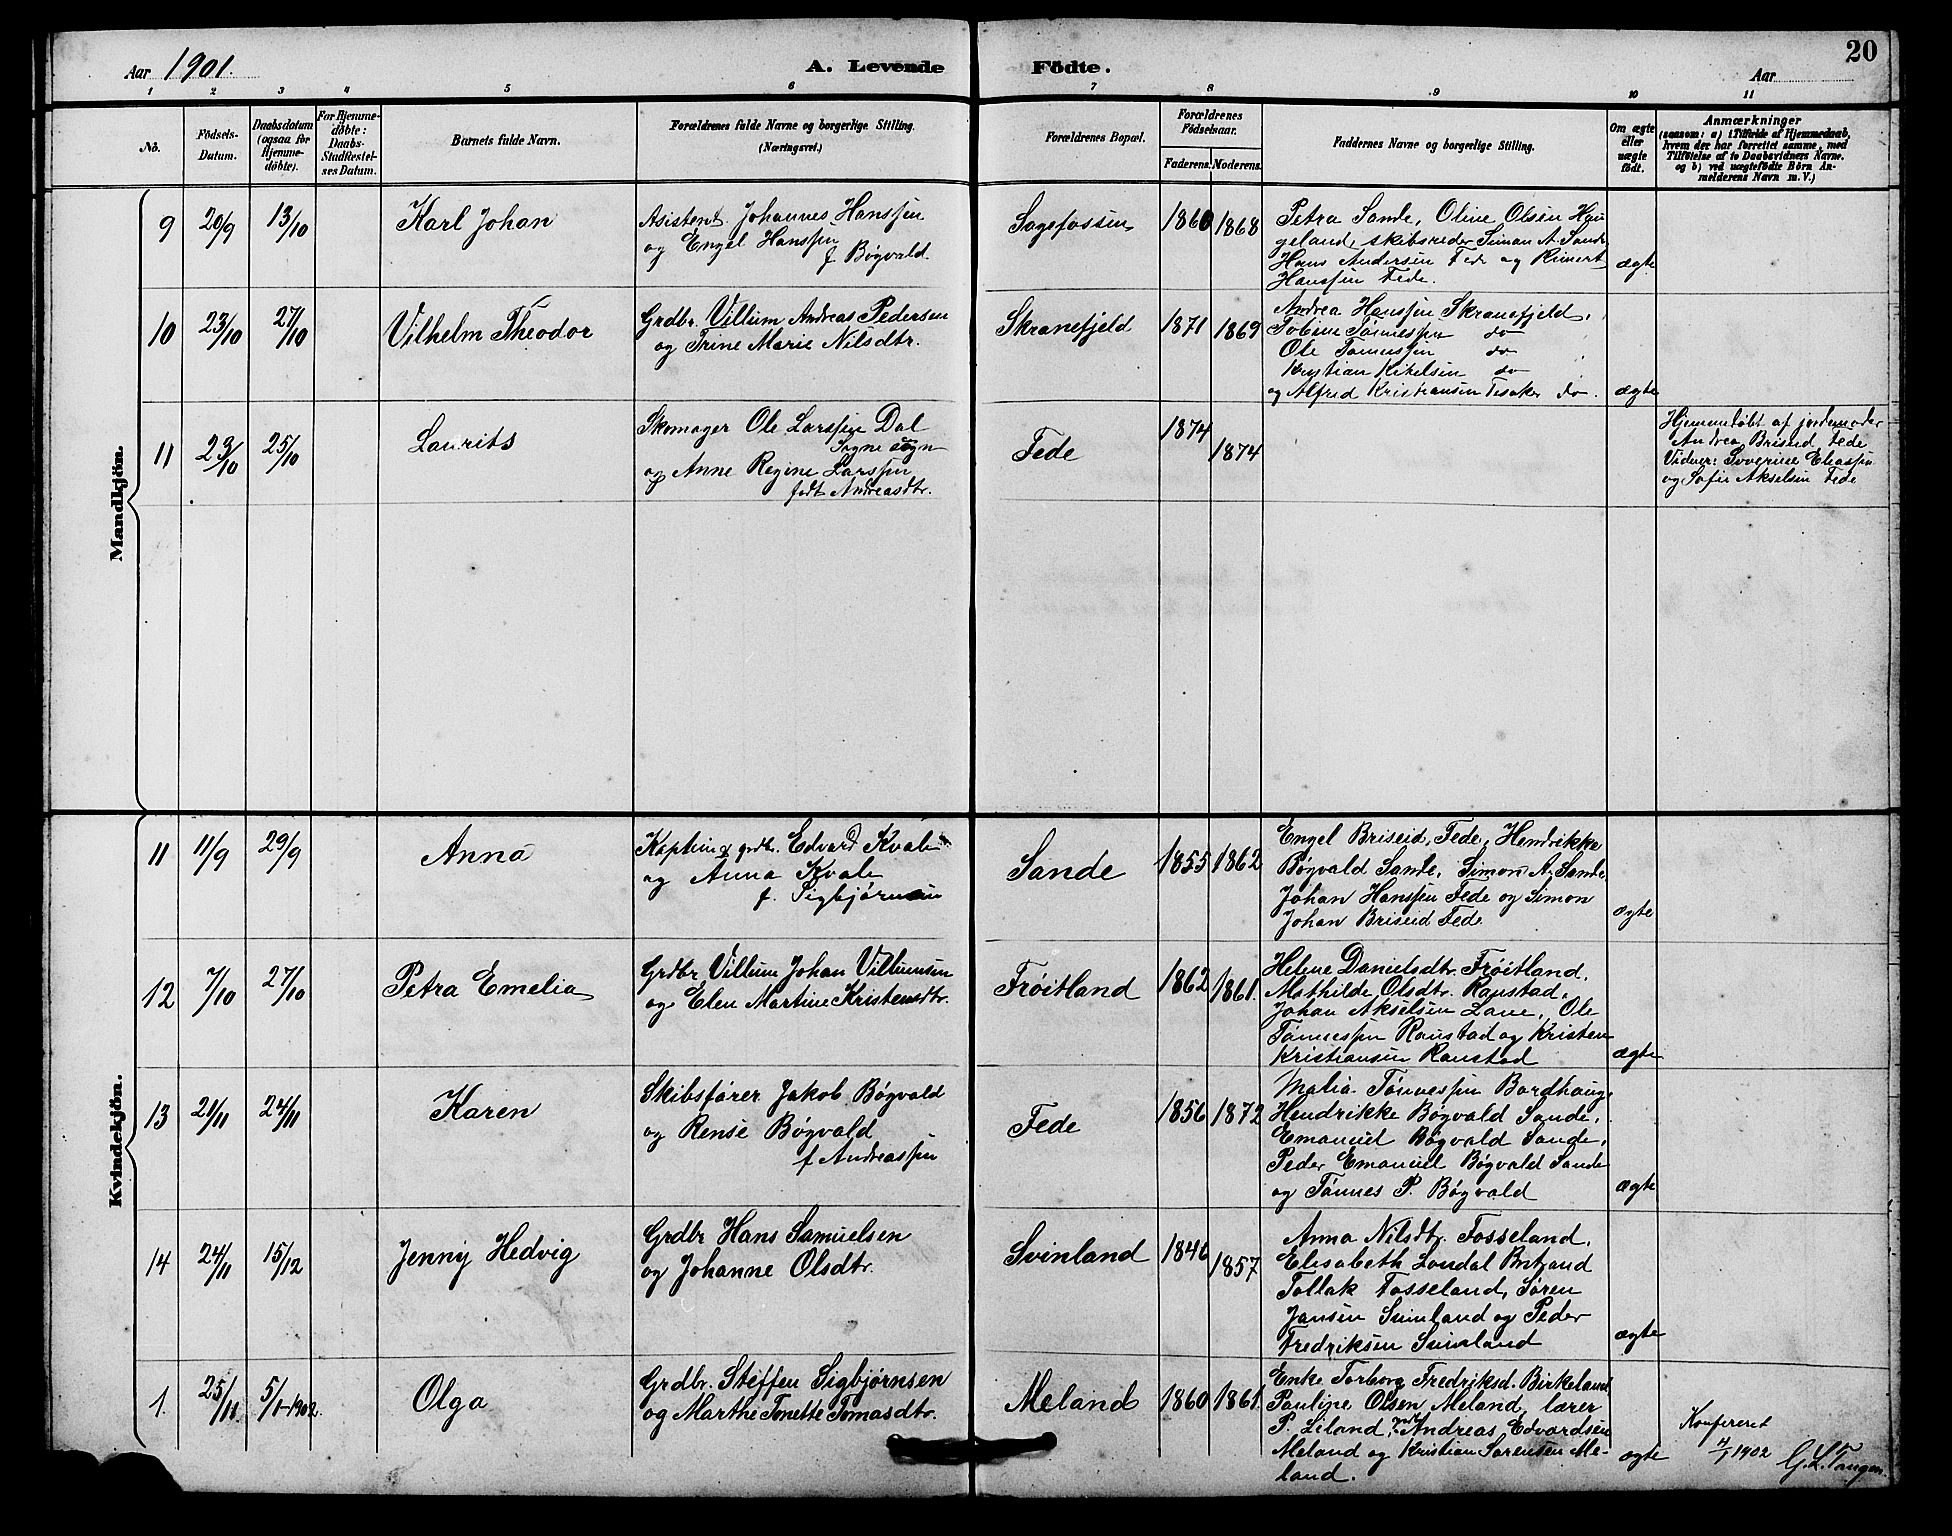 20
Aar 1901.
A. Levende Födte.
Aar
1 2 3 4 5 6 7 8 9 10 11
No.
Födsels-
Datum.
Daabsdatum
(ogsaa for
Hjemme-
döbte).
For Hjemme-
döbte:
Daabs-
Stadfæstel-
ses Datum.
Barnets fulde Navn.
Forældrenes fulde Navne og borgerlige Stilling.
(Næringsvei.)
Forældrenes Bopæl.
Forældrenes
Födselsaar.
Faderens. Moderens.
Faddernes Navne og borgerlige Stilling.
Om ægte
eller
uægte
födt.
Anmærkninger
(saasom: a) i Tilfælde af Hjemmedaab,
hvem der har forrettet samme, med
Tilföielse af to Daabsvidners Navne.
og b) ved uægtefödte Börn An-
melderens Navn m. V.)
Mandkjön.
9 20/9 13/10 Karl Johan
Asistent Johannes Hanssen
og Engel Hanssen
f Bøgvald.
Sagefossen
1860 1868
Petra Sande, Oline Olsen Hau
geland, skibsreder Simon A. Sande
Hans Andersen Fede og Reinert
Hanssen Fede.
ægte
10 23/10 27/10 Vilhelm Theodor
Grdbr. Villum Andreas Pedersen
og Trine Marie Nilsdtr.
Skranefjeld
1871 1869
Andrea Hanssen Skranefjeld,
Tobine Tønnessen do
Ole Tønnessen do
Kristian Kikelsen do
og Alfred Kristiansen Tesaker do.
ægte
11 23/10 25/10 Laurits
Skomager Ole Larssen Dal
Sogne sogn
og Anne Regine Larssen
født Andreasdtr.
Fede
1874 1874
Hjemmedøbt af jordemoder
Andrea Brised Fede
Vidner: Severine Eliassen
og Sofie Akselsen Fede
Kvindekjön.
11 11/9 29/9 Anna
Kaptein & grdbr. Edvard Kvale
og Anna Kvale
f. Sigbjørnsen
Sande
1855 1862
Engel Briseid, Fede, Hendrikke
Bøgvald Sande, Simon A. Sande,
Johan Hanssen Fede og Simon
Johan Briseid Fede
ægte
12 7/10 27/10 Petra Emelia
Grdbr Villum Johan Villumsen
og Elen Martine Kristensdtr.
Frøitland
1862 1861.
Helene Danielsdtr. Frøitland,
Mathilde Olsdtr. Raustad,
Johan Akselsen Lane, Ole
Tønnessen Raustad og Kristen
Kristiansen Raustad
ægte
13 21/11 24/11 Karen
Skibsfører Jakob Bøgvald
og Rense Bøgvald
f Andreassen
Fede
1856 1872
Malia Tønnessen Bordhaug,
Hendrikke Bøgvald Sande,
Emanuel Bøgvald Sande,
Peder Emanuel Bøgvald Sande
og Tønnes P. Bøgvald
ægte
14 24/11 15/12 Jenny Hedvig
Grdbr Hans Samuelsen
og Johanne Olsdtr.
Svinland
1846 1857
Anna Nilsdtr. Fosseland,
Elisabeth Londal
Tollak Fosseland, Søren
Jansen Svinland og Peder
Fredriksen Svinland
ægte
1. 25/11 5/1-1902. Olga
Grdbr. Steffen Sigbjørnsen
og Marthe Tonette Tomasdtr.
Meland
1860 1861
Enke Torborg Fredriksd. Birkeland
Pauline Olsen Meland, lærer
P. Liland, Andreas Edvardsen
Meland og Kristian Sørensen Me-
land.
ægte
Konfereret
1902 G. L. Tangen.